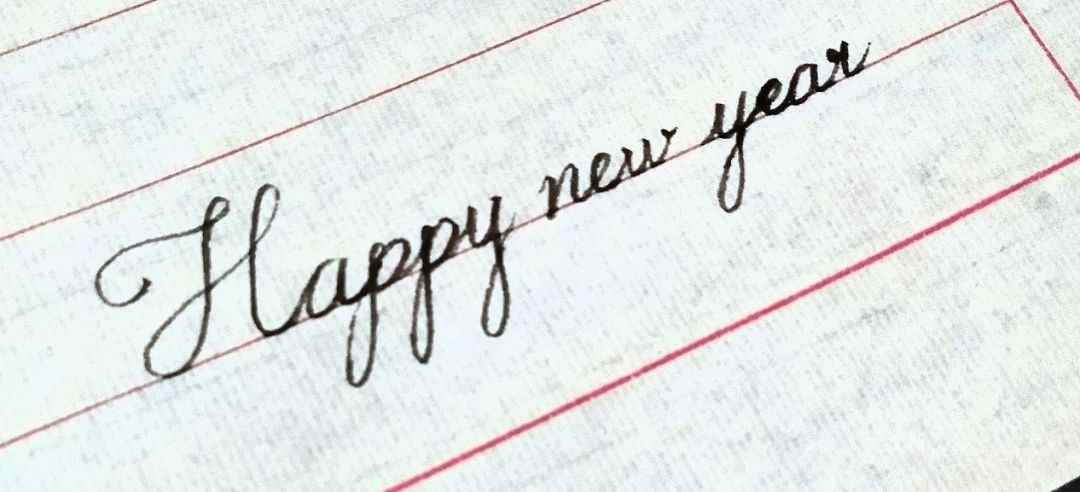 Happy new year